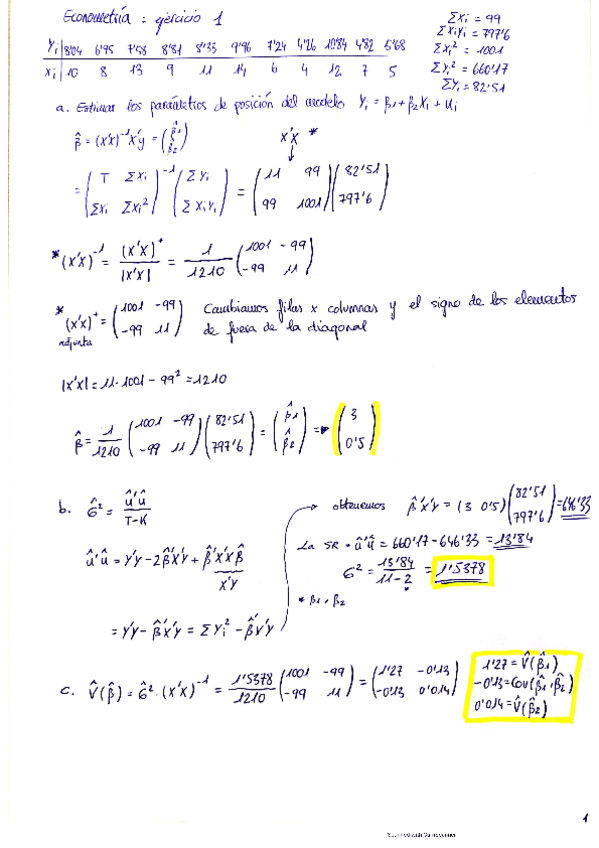 Econometría : ejercicio 1
Σxi = 99
Σxiyi = 797'6
Σxi² = 1001
Σyi² = 660'17
Σyi = 82'51
Yi | 8'04 6'95 7'58 8'81 8'33 9'96 7'24 4'26 10'84 4'82 5'68
xi | 10 8 13 9 11 14 6 4 12 7 5
a. Estimar los parámetros de posición del modelo Yi = β1 + β2Xi + Ui
β̂ = (x'x)⁻¹x'y = (β̂1 β̂2) x'x *
= (T Σxi Σxi Σxi²)⁻¹ (Σyi Σxiyi) = (11 99 99 1001) (82'51 797'6)
*(x'x)⁻¹ = (x'x)⁺ / |x'x| = 1/1210 (1001 -99 -99 11)
* (x'x)⁺ = (1001 -99 -99 11) Cambiamos filas x columnas y el signo de los elementos
adjunta de fuera de la diagonal
|x'x| = 11·1001 - 99² = 1210
β̂ = 1/1210 (1001 -99 -99 11) (82'51 797'6) = (β̂1 β̂2) => (3 0'5)
b. σ̂² = û'û / T-K
obtenemos β̂'x'y = (3 0'5) (82'51 797'6) = 646'33
û'û = y'y - 2β̂'x'y + β̂'x'xβ̂
x'y
La SR = û'û = 660'17 - 646'33 = 13'84
σ² = 13'84 / 11-2 = 1'5378
* β1, β2
= y'y - β̂'x'y = Σyi² - β̂'x'y
c. V̂(β̂) = σ̂²·(x'x)⁻¹ = 1'5378/1210 (1001 -99 -99 11) = (1'27 -0'13 -0'13 0'014)
1'27 = V̂(β̂1)
-0'13 = Cov(β̂1,β̂2)
0'014 = V̂(β̂2)
1